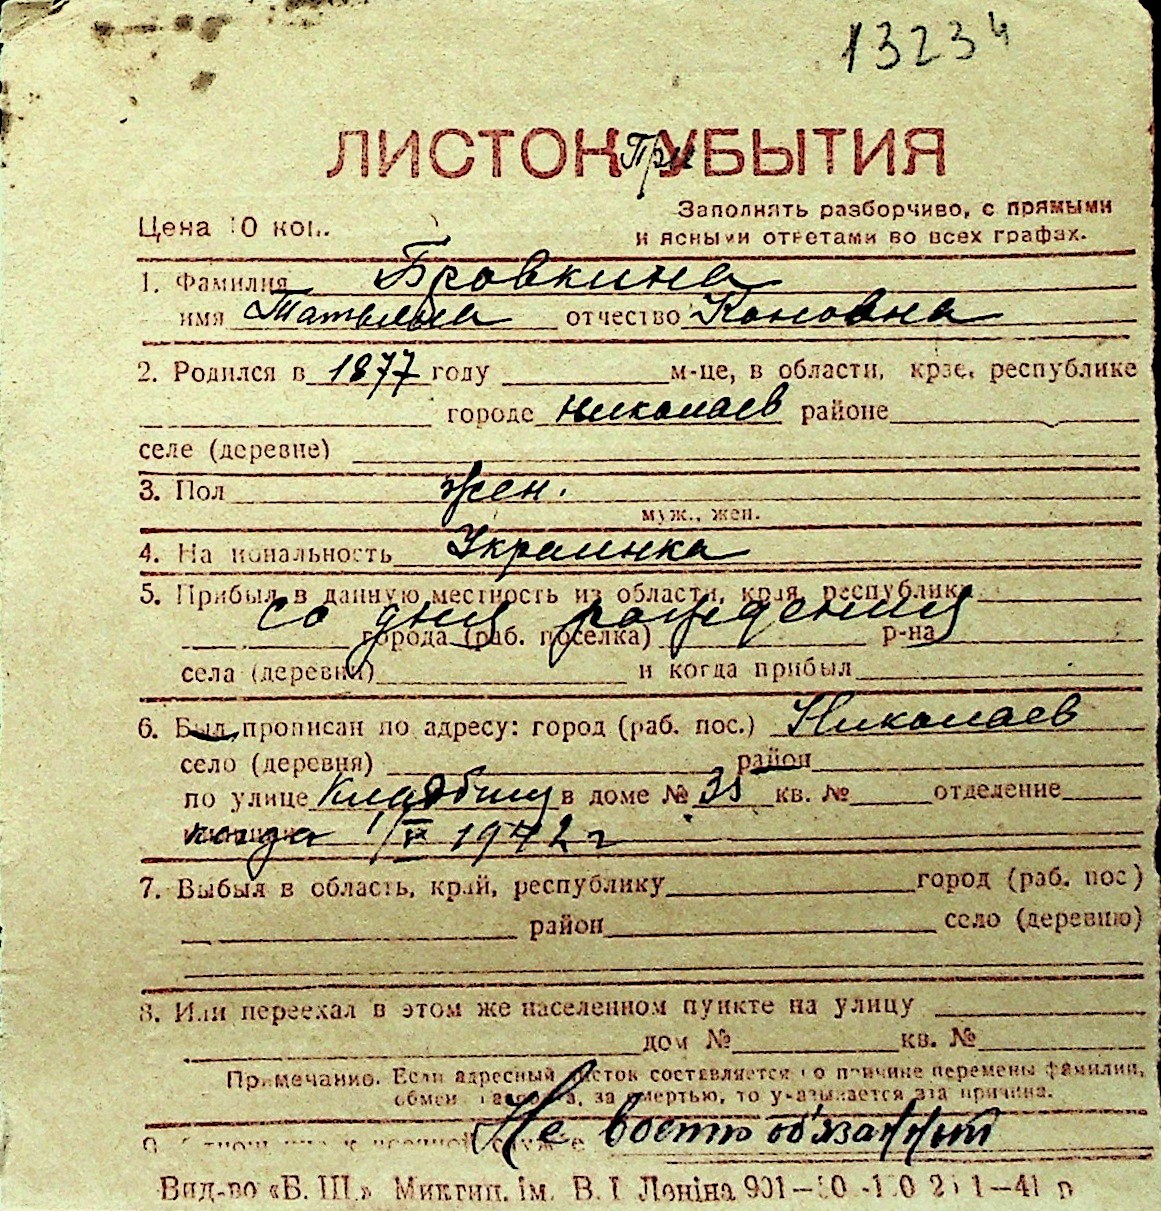 13234
ЛИСТОК При УБЫТИЯ
Цена 10 коп.
Заполнять разборчиво, с прямыми
и ясными ответами во всех графах.
1. Фамилия Бровкина
имя Татьяна отчество Кановна
2. Родился в 1877 году м-це, в области, крае, республике
городе Николаев районе
селе (деревне)
3. Пол жен.
муж., жен.
4. Национальность Украинка
5. Прибыл в данную местность из области, края, республики
со дня рождения
города (раб. поселка) р-на
села (деревни) и когда прибыл
6. Был прописан по адресу: город (раб. пос.) Николаев
село (деревня) район
по улице в доме № 35 кв. № отделение
когда 1942 г
7. Выбыл в область, край, республику город (раб. пос)
район село (деревню)
8. Или переехал в этом же населенном пункте на улицу
дом № кв. №
Примечание. Если адресный листок составляется по причине перемены фамилии,
обмен паспорта, за смертью, то указывается эта причина.
9. Не воен об'язанный
Вид-во «Б. Ш.» Миктип. ім. В. І Леніна